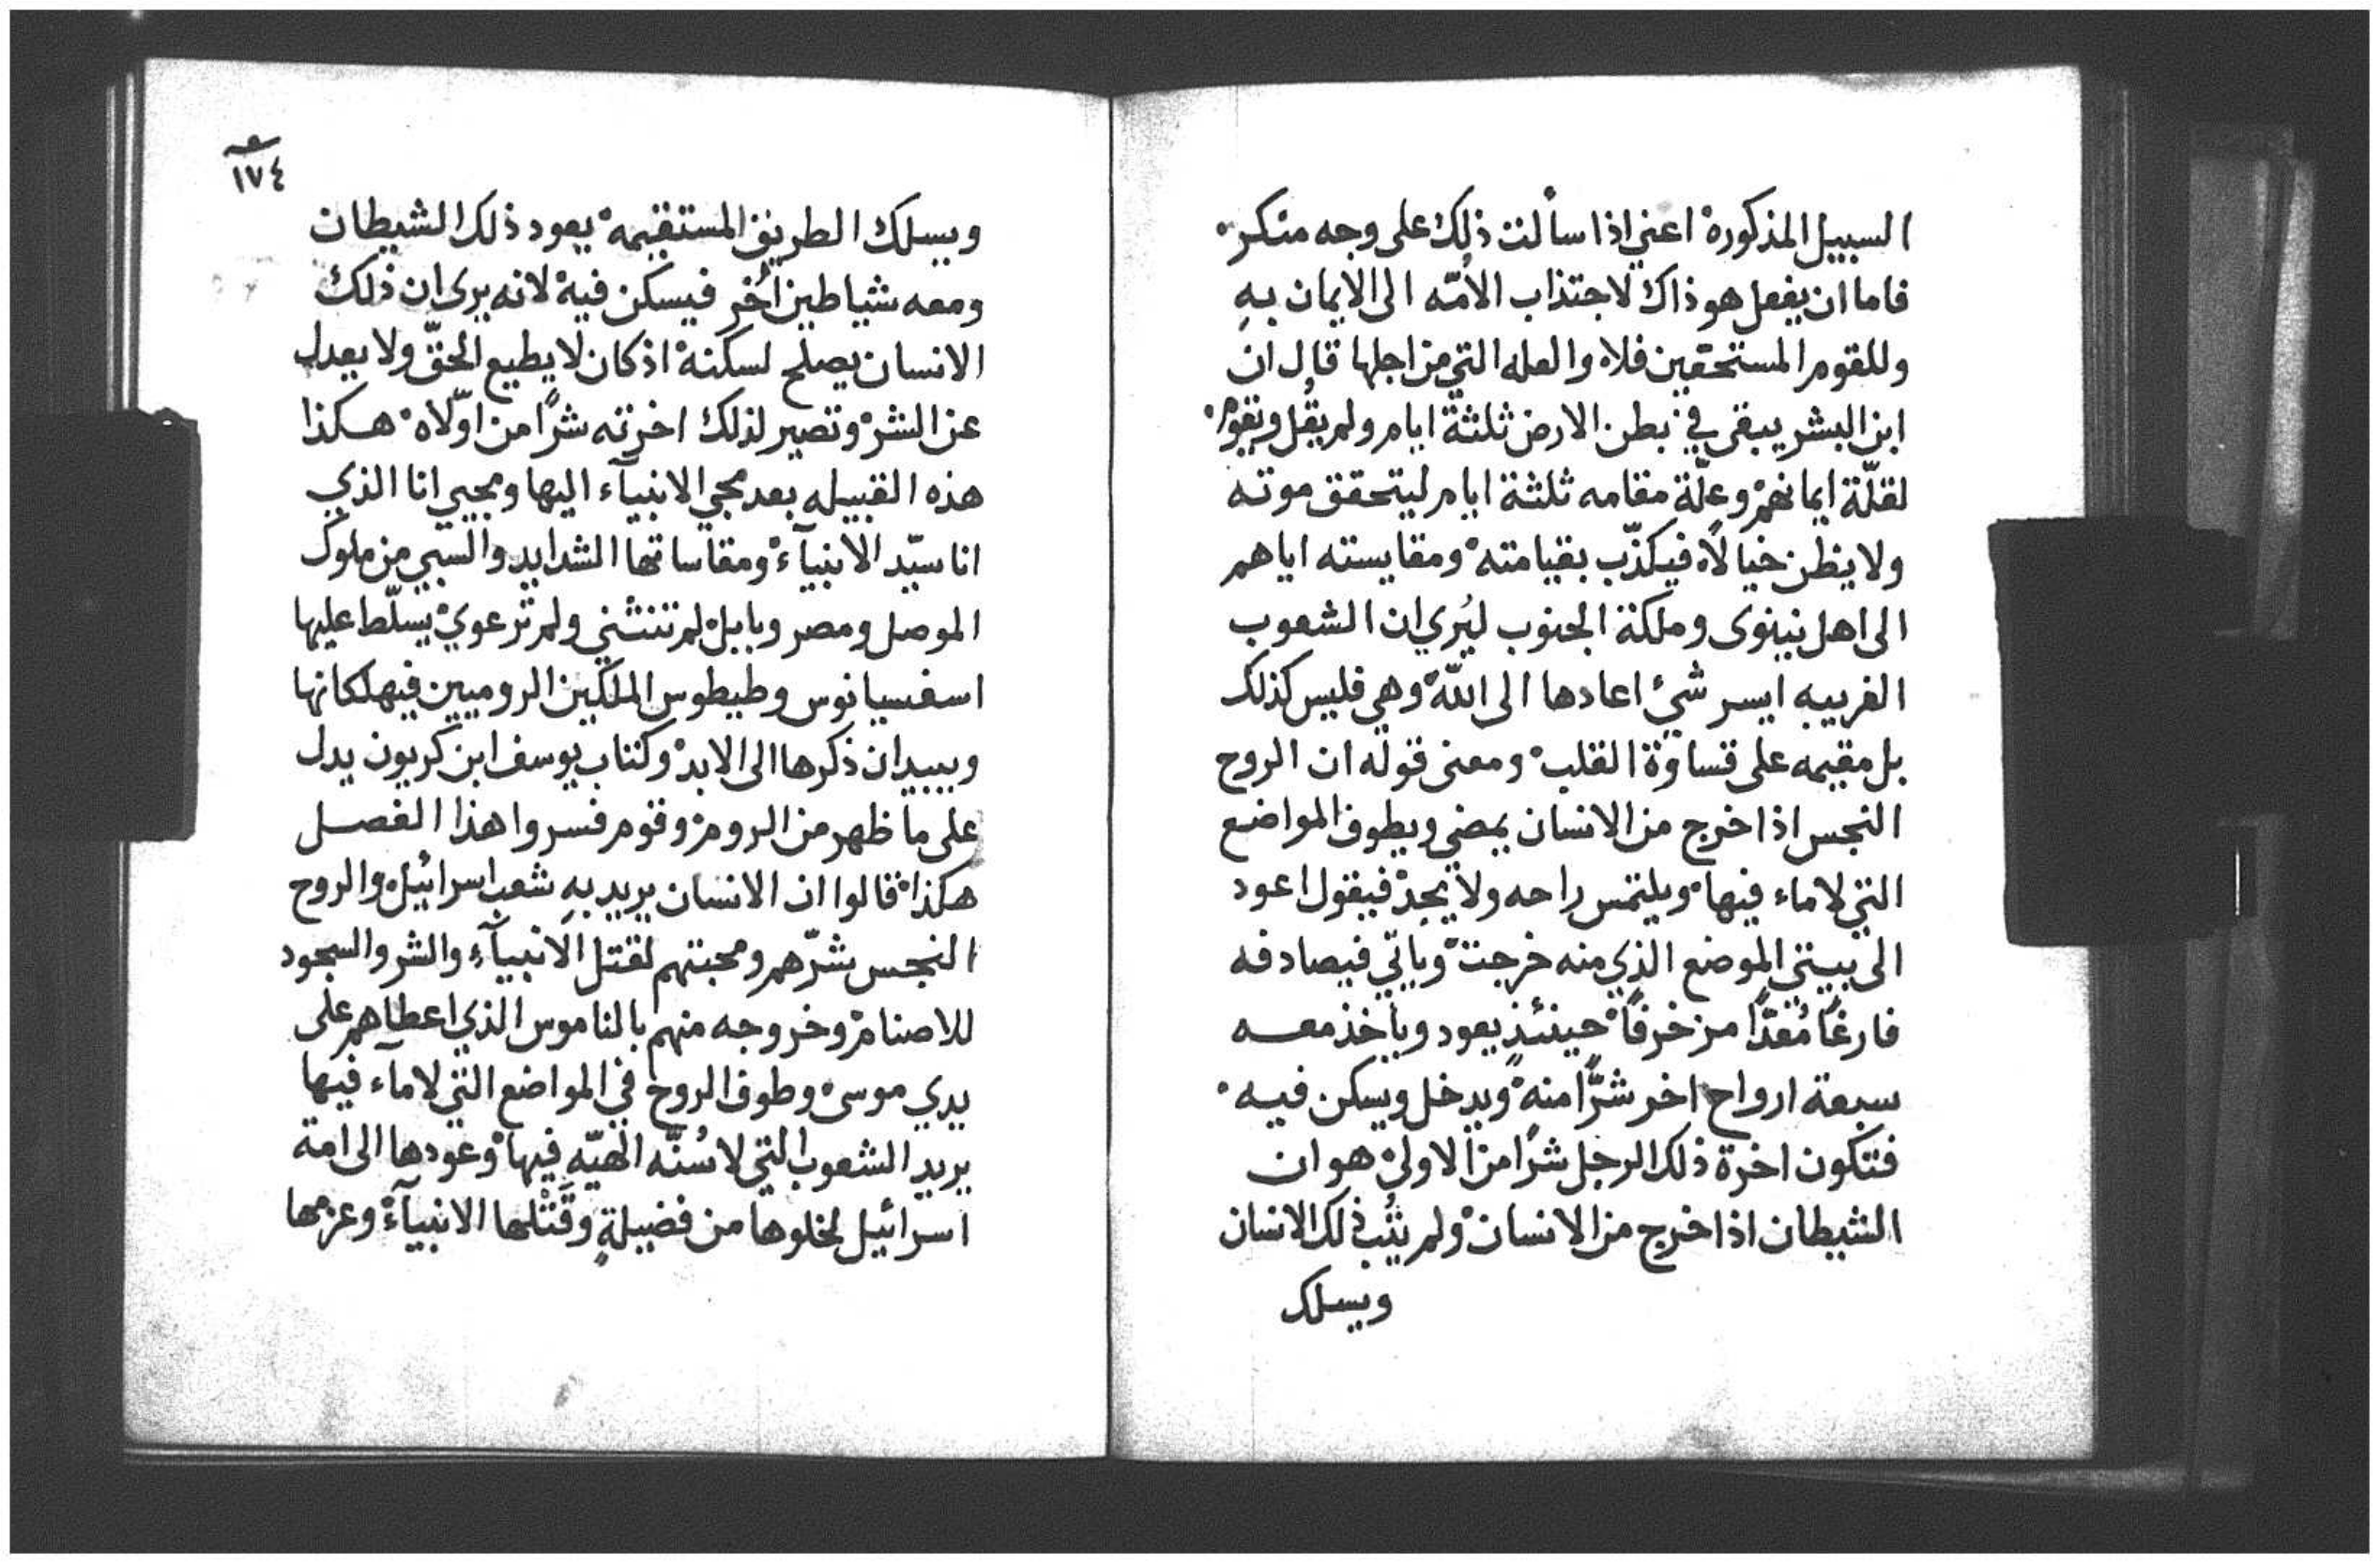 السبيل المذكورة اعني اذا سألت ذلك على وجه منكر
فاما ان يفعل هو ذاك لاجتذاب الأمّه الى الايمان بهِ
وللقوم المستحقين فلا والعله التي من اجلها قال ان
ابن البشر يبقى في بطن الارض ثلثة ايام ولم يقُل ويقوم
لقلّة ايمانهم وعلّة مقامه ثلثة ايام ليتحقق موته
ولا يظن خيالًا فيكذّب بقيامته ومقايسته اياهم
الى اهل نينوى وملكة الجنوب ليُري ان الشعوب
الغريبه ايسر شيٍ اعادها الى اللّه وهي فليس كذلك
بل مقيمه على قساوة القلب ومعنى قوله ان الروح
النجس اذا خرج من الانسان يمضي ويطوف المواضع
التي لا ماء فيها ويلتمس راحه ولا يجد فيقول اعود
الى بيتي الموضع الذي منه خرجت وياتي فيصادفه
فارغًا مُعَدًّا مزخرفًا حينئذٍ يعود ويأخذ معه
سبعة ارواح اخر شرًّا منه ويدخل ويسكن فيه
فتكون اخرة ذلك الرجل شرًا من الاولى هو ان
الشيطان اذا خرج من الانسان ولم يتُب ذلك الانسان
ويسلك
١٧٤
ويسلك الطريق المستقيمه يعود ذلك الشيطان
ومعه شياطين أخر فيسكن فيه لانه يرى ان ذلك
الانسان يصلح لسكنه اذ كان لا يطيع الحقّ ولا يعدل
عن الشر وتصير لذلك اخرته شرًا من اوّلاه هكذا
هذه القبيله بعد مجي الانبيآء اليها ومجيي انا الذي
انا سيّد الانبيآء ومقاساتها الشدايد والسبي من ملوك
الموصل ومصر وبابل لم تنثني ولم ترعوي يسلّط عليها
اسفسيانوس وطيطوس الملكين الروميين فيهلكانها
ويبيدان ذكرها الى الابد وكتاب يوسف ابن كريون يدل
على ما ظهر من الروم وقوم فسروا هذا الفصل
هكذا قالوا ان الانسان يريد بهِ شعب اسرائيل والروح
النجس شرّهم ومحبتهم لقتل الانبيآء والشر والسجود
للاصنام وخروجه منهم بالناموس الذي اعطاهم على
يدي موسى وطوف الروح في المواضع التي لا مآء فيها
يريد الشعوب التي لا سُنّه الهيّه فيها وعودها الى امة
اسرائيل لخلوها من فضيلةٍ وقَتْلها الانبيآء وعزمها